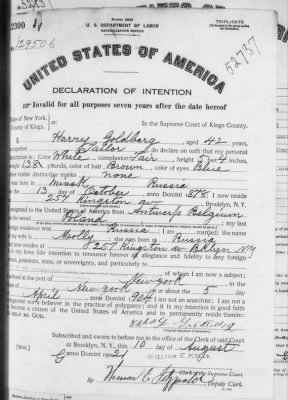 Form 2202
TRIPLICATE
U. S. DEPARTMENT OF LABOR
NATURALIZATION SERVICE
No. 129506
52737
UNITED STATES OF AMERICA
DECLARATION OF INTENTION
Invalid for all purposes seven years after the date hereof
State of New York,
County of Kings,
In the Supreme Court of Kings County.
Harry Goldberg, aged 42 years,
Tailor, do declare on oath that my personal
description is: Color White, complexion Fair, height 5 feet 4 inches,
weight 138 pounds, color of hair Brown, color of eyes Blue
visible distinctive marks none
was born in Minsk Russia
on the 13 day of October, anno Domini 1878; I now reside
at 257 Kingston av, Brooklyn, N. Y.
emigrated to the United States of America from Antwerp Belgium
; my last
foreign residence was Russia; I am married; the name
she was born in Russia
now resides at 257 Kingston av Bklyn N.Y.
It is my bona fide intention to renounce forever all allegiance and fidelity to any foreign
prince, potentate, state, or sovereignty, and particularly to
of whom I am now a subject;
arrived at the port of New York, in the
New York, on or about the 5 day
April, anno Domini 1904; I am not an anarchist; I am not a
polygamist nor a believer in the practice of polygamy; and it is my intention in good faith
to become a citizen of the United States of America and to permanently reside therein:
SO HELP ME GOD.
Subscribed and sworn to before me in the office of the Clerk of said Court
[SEAL]
at Brooklyn, N. Y., this 10 day of August
anno Domini 1921
WILLIAM E. KELLY
Clerk of the Supreme Court.
By
Deputy Clerk.